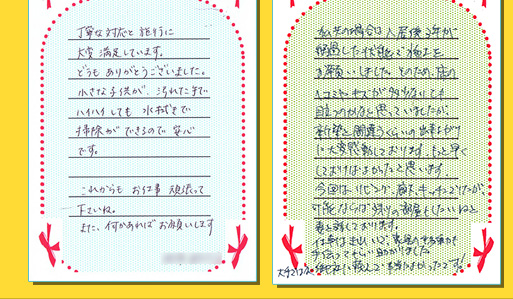 丁寧な対応と施行に
大変満足しています。
どうもありがとうございました。
小さな子供が、汚れた手で
ハイハイしても 水拭きで
掃除ができるので 安心
です。
これからも お仕事 頑張って
下さいね。
また、何かあればお願いします
私共の場合は入居後3年が
経過した状態で施工を
お願いしました。そのため、床の
ヘコミやキズが多少ないても
目立つのかなと思っていましたが、
新築と間違うくらいの出来上がり
に大変感動しております。もっと早く
しておけばよかったと思います。
今回はリビング、廊下、キッチンでしたが、
可能ならば残りの部屋もしたいねと
妻と話しております。
仕事は早いし、家具の移動も
手伝ってもらい助かりました
御社に頼んで本当によかったです!